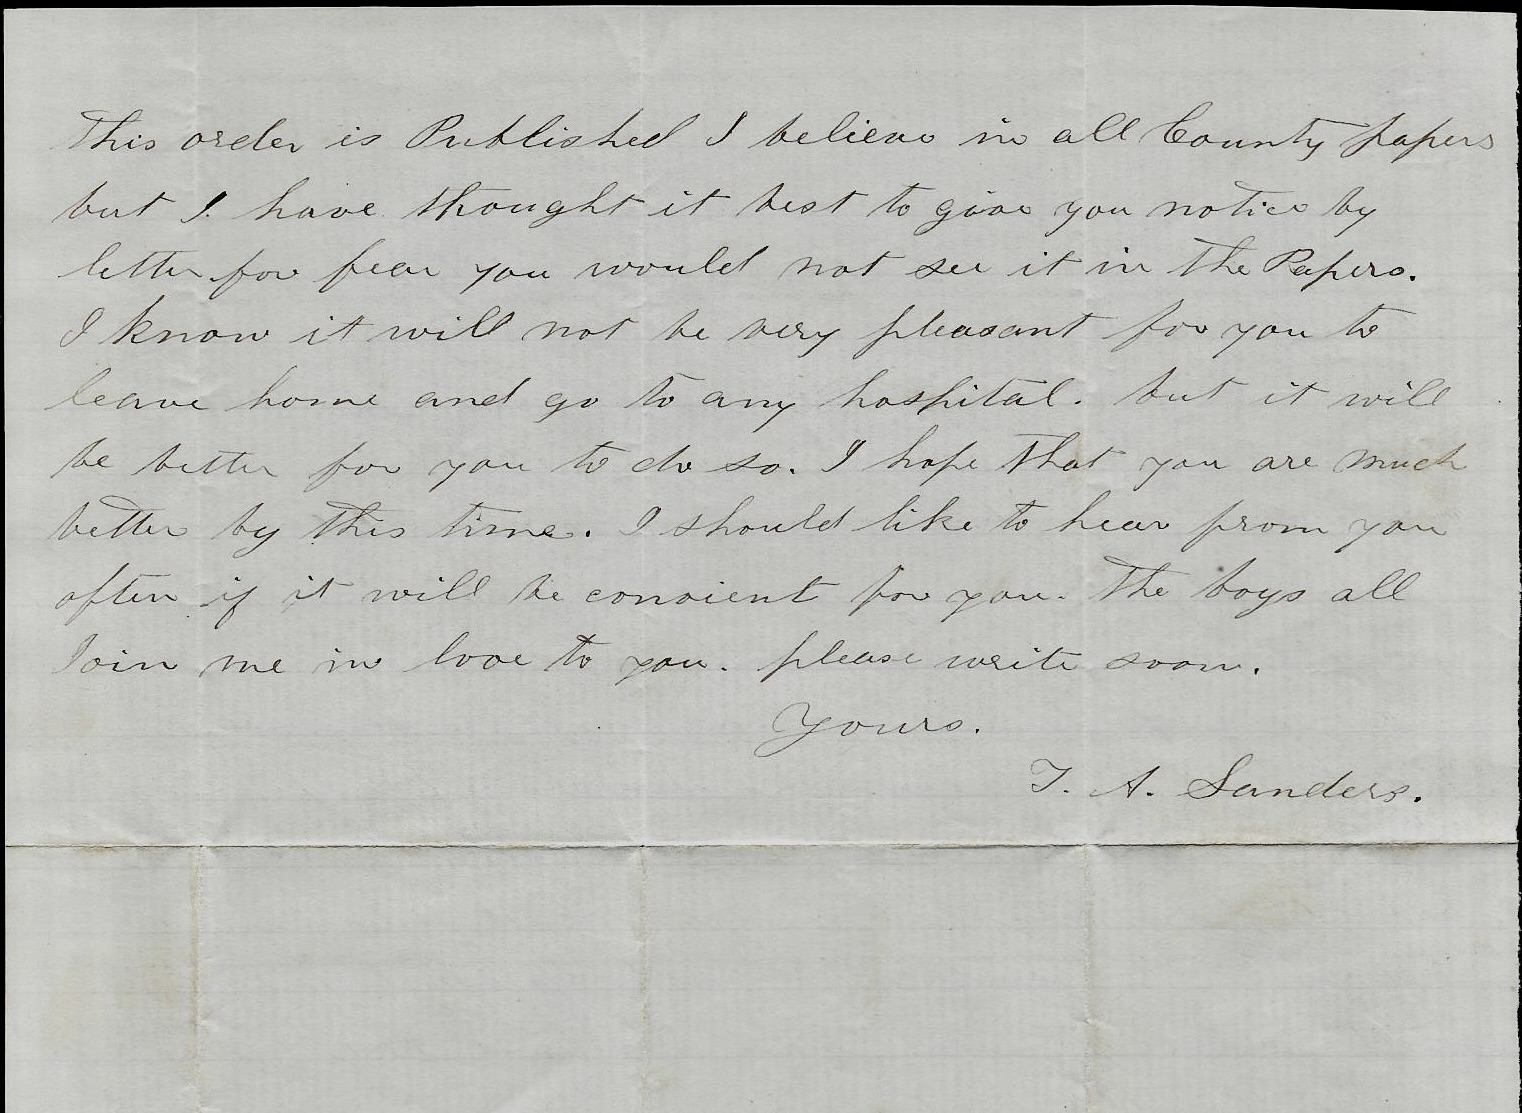 This order is Published I believe in all County papers
but I. have thought it best to give you notice by
letter for fear you would not see it in the Papers.
I know it will not be very pleasant for you to
leave home and go to any hospital. but it will
be better for you to do so. I hope that you are much
better by this time. I should like to hear from you
often if it will be convient for you. The boys all
Join me in love to you. please write soon.
Yours.
T. A. Sanders.